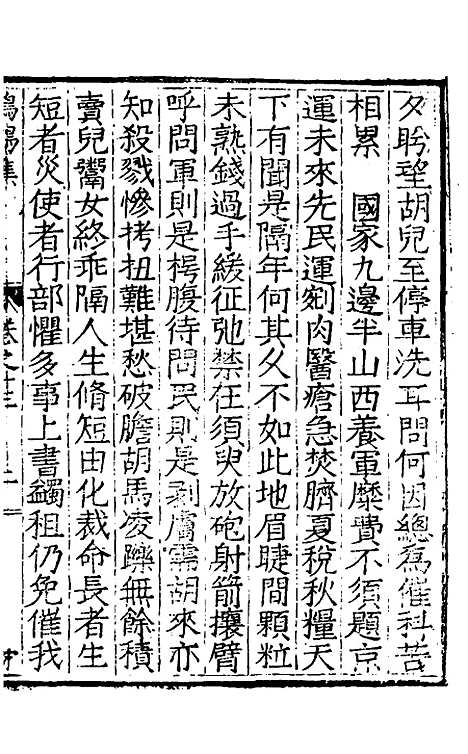 夕盻望胡兒至停車洗耳問何因總爲催科苦
相累　國家九邊半山西養軍糜費不須題京
運未來先民運剜肉醫瘡急焚臍夏稅秋糧天
下有聞是隔年何其久不如此地眉睫間顆粒
未熟錢過手緩征弛禁在須臾放砲射箭攘臂
呼問軍則是枵腹待問民則是剥膚需胡來亦
知殺戮慘拷扭難堪愁破膽胡馬凌躒無餘積
賣兒鬻女終乖隔人生脩短由化裁命長者生
短者災使者行部懼多事上書蠲租仍免催我
集　卷之十三